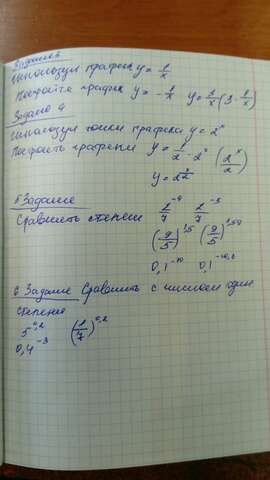 Задание 3
Используя график y = 1/x
Постройте график y = -1/x y = 1/x (3 · 1/x)
Задание 4
Используя точки графика y = 2ˣ
Построить графики y = 1/2 · 2ˣ (2ˣ/2)
y = 2^(x/2)
5 Задание
Сравнить степени 2/7⁻⁴ 2/7⁻⁵
(9/5)^1,5 (9/5)
0,1⁻¹⁰ 0,1
6 Задание Сравнить с числом один
степени
5^0,2 (1/7)^0,2
0,4⁻³